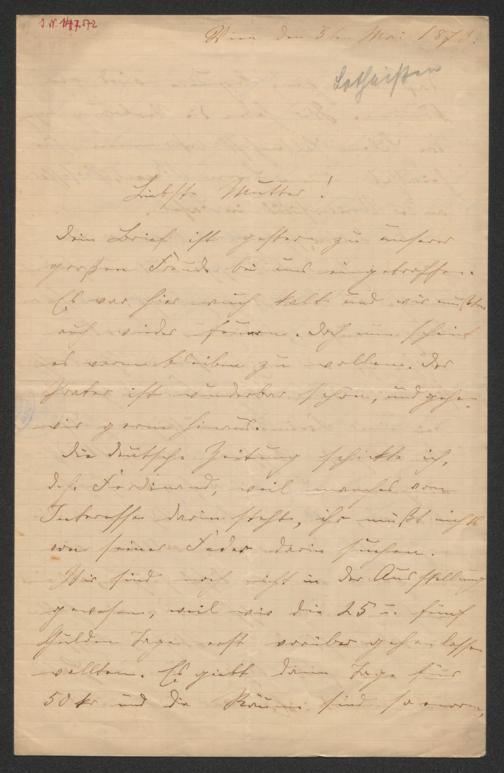 Wien den 3ten Mai 1873.
Lotheißen
Liebste Mutter!
Dein Brief ist gestern zu unserer
großen Freude bei uns eingetroffen.
Es war hier auch kalt und wir mußten
auch wieder feuern. Doch nun scheint
es warm bleiben zu wollen. Der
Prater ist wunderbar schön, und gehen
wir gerne hinaus.
Die deutsche Zeitung schickte ich,
daß Ferdinand, weil manches von
Interesse darin steht, ihr müßt nichts
von seiner Feder darin suchen.
Wir sind noch nicht in der Ausstellung
gewesen, weil wir die 25 u. fünf
Gulden Tage erst vorüber gehen lassen
wollten. Es giebt dann Tage für
50 kr und die Räume sind so enorm,